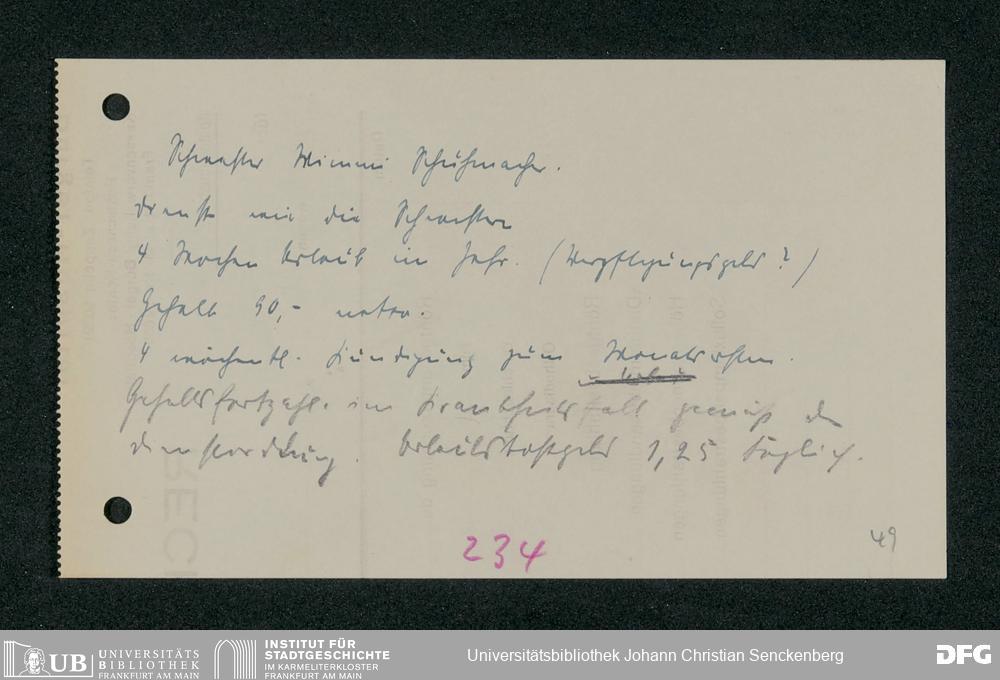 Schwester Minni Schuhmacher.
Dienst wie die Schwestern
4 Wochen Urlaub im Jahr. (Verpflegungsgeld?)
Gehalt 90,- netto.
4 wöchentl. Kündigung zum Monatsersten.
Gehaltsfortzahl. im Krankheitsfall gemäß der
Dienstordnung. Urlaubskostgeld 1,25 täglich.
234
49
UB UNIVERSITÄTS
BIBLIOTHEK
FRANKFURT AM MAIN
INSTITUT FÜR
STADTGESCHICHTE
IM KARMELITERKLOSTER
FRANKFURT AM MAIN
Universitätsbibliothek Johann Christian Senckenberg
DFG